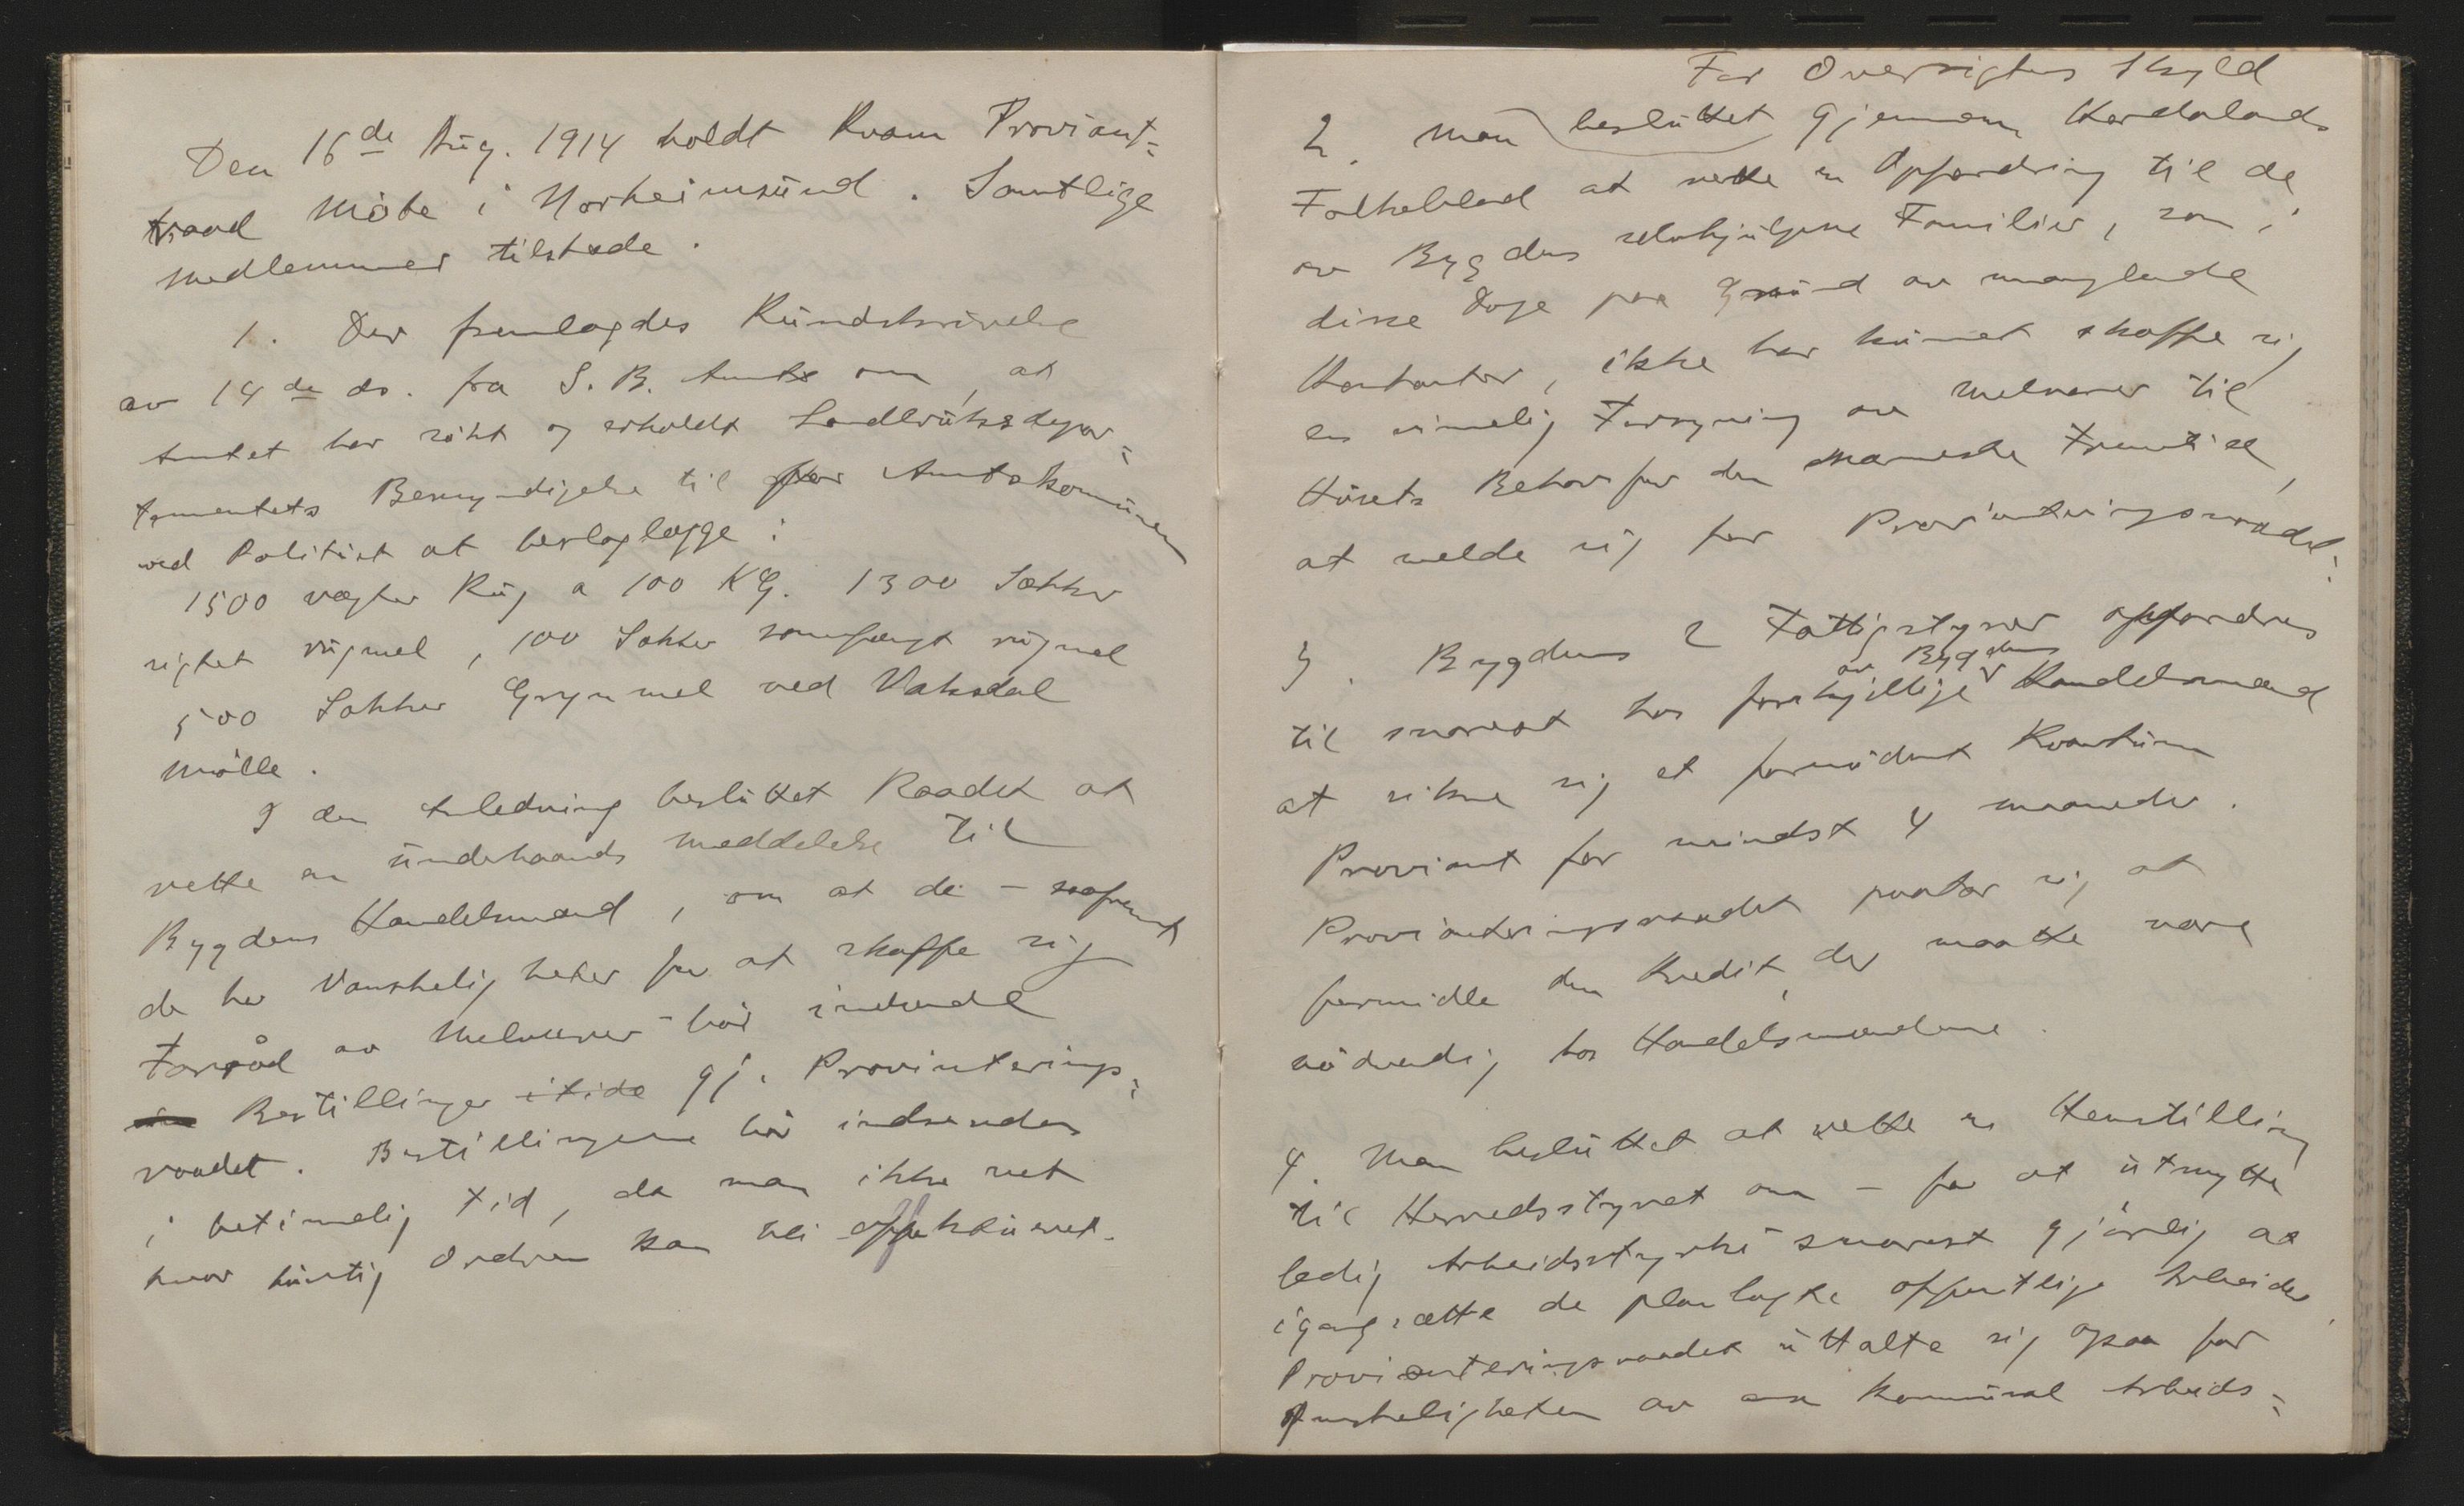 Den 16de Aug. 1914 holdt Kvam Proviant-
raad Møte i Norheimsund. Samtlige
Medlemmer tilstede.
1. Der fremlagdes Rundskrivelse
av 14de ds. fra S. B. Amt om, at
Amtet har søkt og erholdt Landbruksdepar-
tementets Bemyndigelse til for Amtskommunen
ved Politiet at beslaglægge:
1500 vægter Rug a 100 KG. 1300 Sækker
sigtet rugmel, 100 Sækker samfængt rugmel
500 Sækker Grynmel ved Vaksdal
Mølle.
I den Anledning besluttet Raadet at
rette en underhaands Meddelelse til
Bygdens Handelsmænd, om at de - saafremt
de har Vanskeligheter for at skaffe sig
Forråd av Melvarer - bør indsende
Bestillinger itide gj. Provianterings-
raadet. Bestillingene bør indsendes
i betimelig tid, da man ikke vet
hvor hurtig Ordren kan bli effektueret.
For Oversigtens Skyld
2. Man besluttet gjennem Hordalands
Folkeblad at rette en Opfordring til de
av Bygdens selvhjulpne Familier, som i
disse Dage paa Grund av manglende
Kontanter, ikke har kunnet skaffe sig
en rimelig Forsyning av Melvarer til
Husets Behov for den nærmeste Fremtid,
at melde sig for Provianteringsraadet.
3. Bygdens 2 Fattigstyrer opfordres
av Bygdens
til snarest hos forskjellige Handelsmænd
at sikre sig et fornødent Kvantum
Proviant for mindst 4 maaneder.
Provianteringsraadet paatar sig at
formidle den Kredit, der maatte være
nødvendig hos Handelsmændene.
4. Man besluttet at rette en Henstilling
til Herredsstyret om - for at utnytte
ledig Arbeidsstyrke - snarest gjørlig at
igangsætte de planlagte offentlige Arbeider.
Provianteringsraadet uttalte sig ogsaa for
Ønskeligheten av en Kommunal Arbeids-